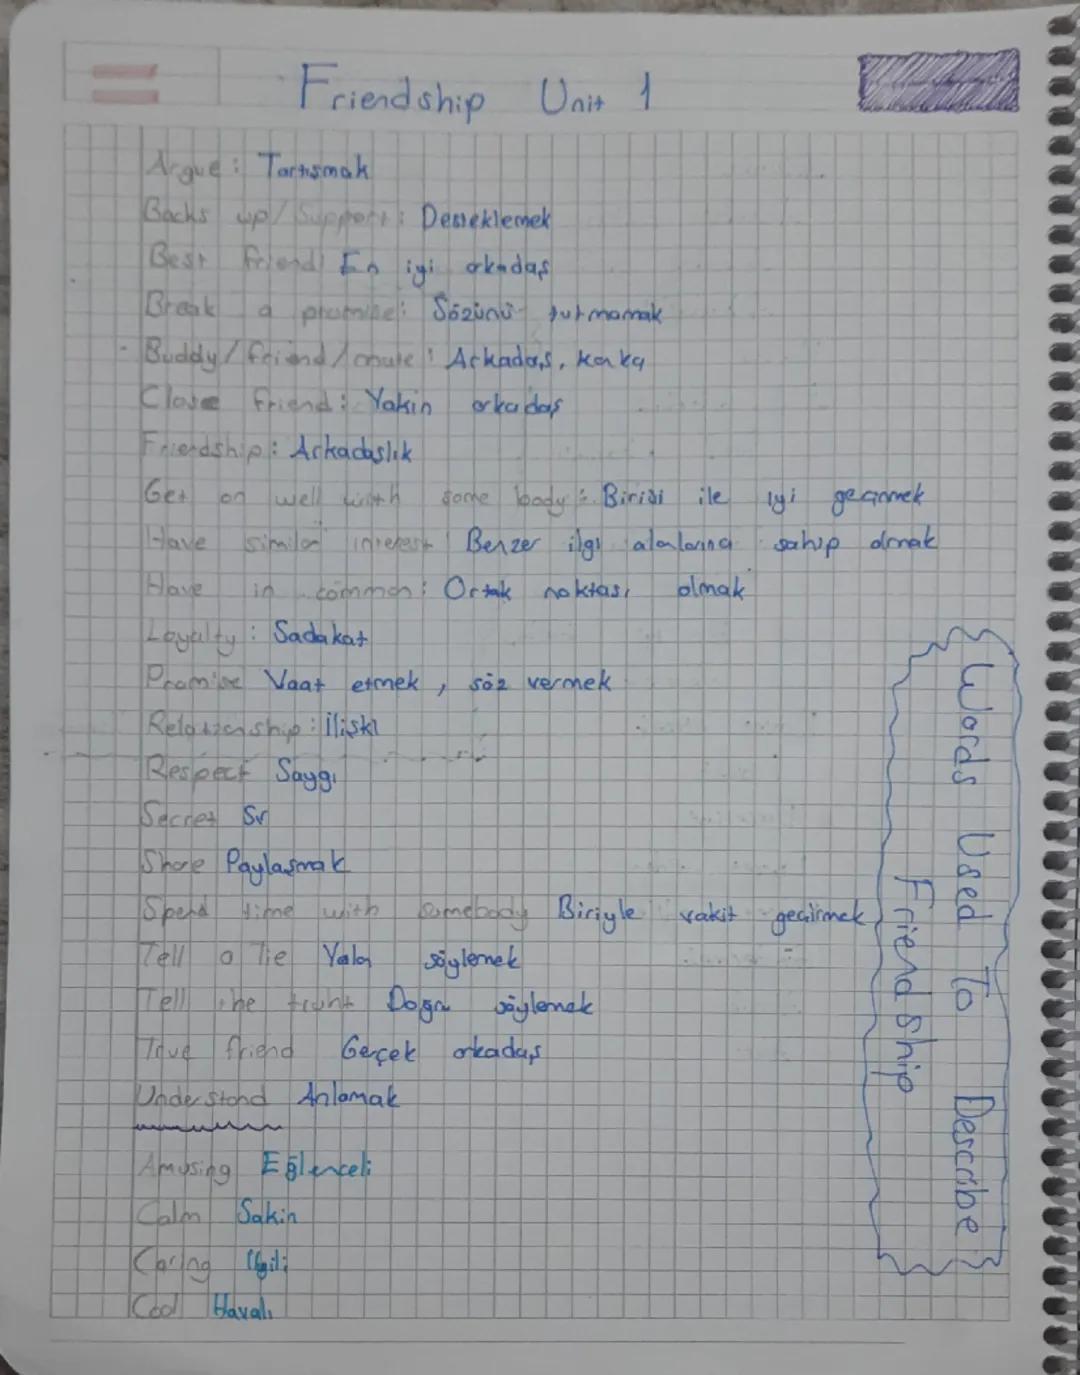 Friendship Unit 1
Argue: Tartışmak
Backs up/Support: Desteklemek
Best friend: En iyi arkadaş
Break a promise: Sözünü tutmamak
Buddy/friend/mate: Arkadaş, kanka
Close friend: Yakin arkadaş
Friendship: Arkadaşlık
Get on well with some body: Birisi ile iyi geçinmek
Have similar interest Benzer ilgi alanlarına sahip olmak
Have in common: Ortak noktası olmak
Loyalty: Sadakat
Promise Vaat etmek, söz vermek
Relationship: İlişki
Respect Saygı
Secret Sır
Share Paylaşmak
Spend time with somebody Biriyle vakit geçirmek
Tell a lie Yalan söylemek
Tell the truht Doğru söylemek
True friend Gerçek arkadaş
Understand Anlamak
Amusing Eğlenceli
Calm Sakin
Caring İlgili
Cool Havalı
Words Used To Describe
Friendship